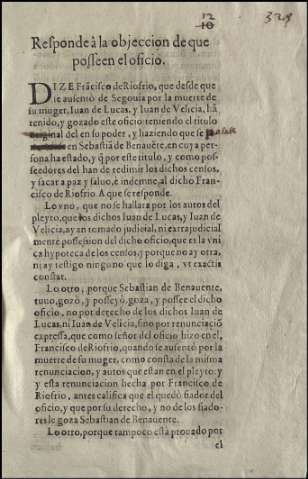 12
10
Responde à la objeccion de que
posseen el oficio.
DIZE Frãcisco de Riofrio, que desde que
se ausentò de Segouia por la muerte de
su muger, Iuan de Lucas, y Iuan de Velicia, hã
tenido, y gozado este oficio, teniendo el titulo
original del en su poder, y haziendo que se
en Sebastiã de Benauẽte, en cuya per
sona ha estado, y q̃ por este titulo, y como pos-
seedores del han de redimir los dichos censos,
y sacar a paz y saluo, e indemne, al dicho Fran-
cisco de Riofrio. A que se responde.
Lo vno, que no se hallara por los autos del
pleyto, que los dichos Iuan de Lucas, y Iuan de
Velicia, ayan tomado judicial, ni extrajudicial
mente possession del dicho oficio, que es la vni
ca hypoteca de los censos, y porque no ay otra,
ni ay testigo ninguno que lo diga, vt ex actis
constat.
Lo otro, porque Sebastian de Benauente,
tuuo, gozò, y posseyò, goza, y possee el dicho
oficio, no por derecho de los dichos Iuan de
Lucas, ni Iuan de Velicia, sino por renunciacio
expressa, que como señor del oficio hizo en el,
Francisco de Riofrio, quando se ausentò por la
muerte de su muger, como consta de la misma
renunciacion, y autos que estan en el pleyto: y
y esta renunciacion hecha por Francisco de
Riofrio, antes califica que el quedò fiador del
oficio, y que por su derecho, y no de los fiado-
res le goza Sebastian de Benauente.
Lo otro, porque tampoco està prouado por
el